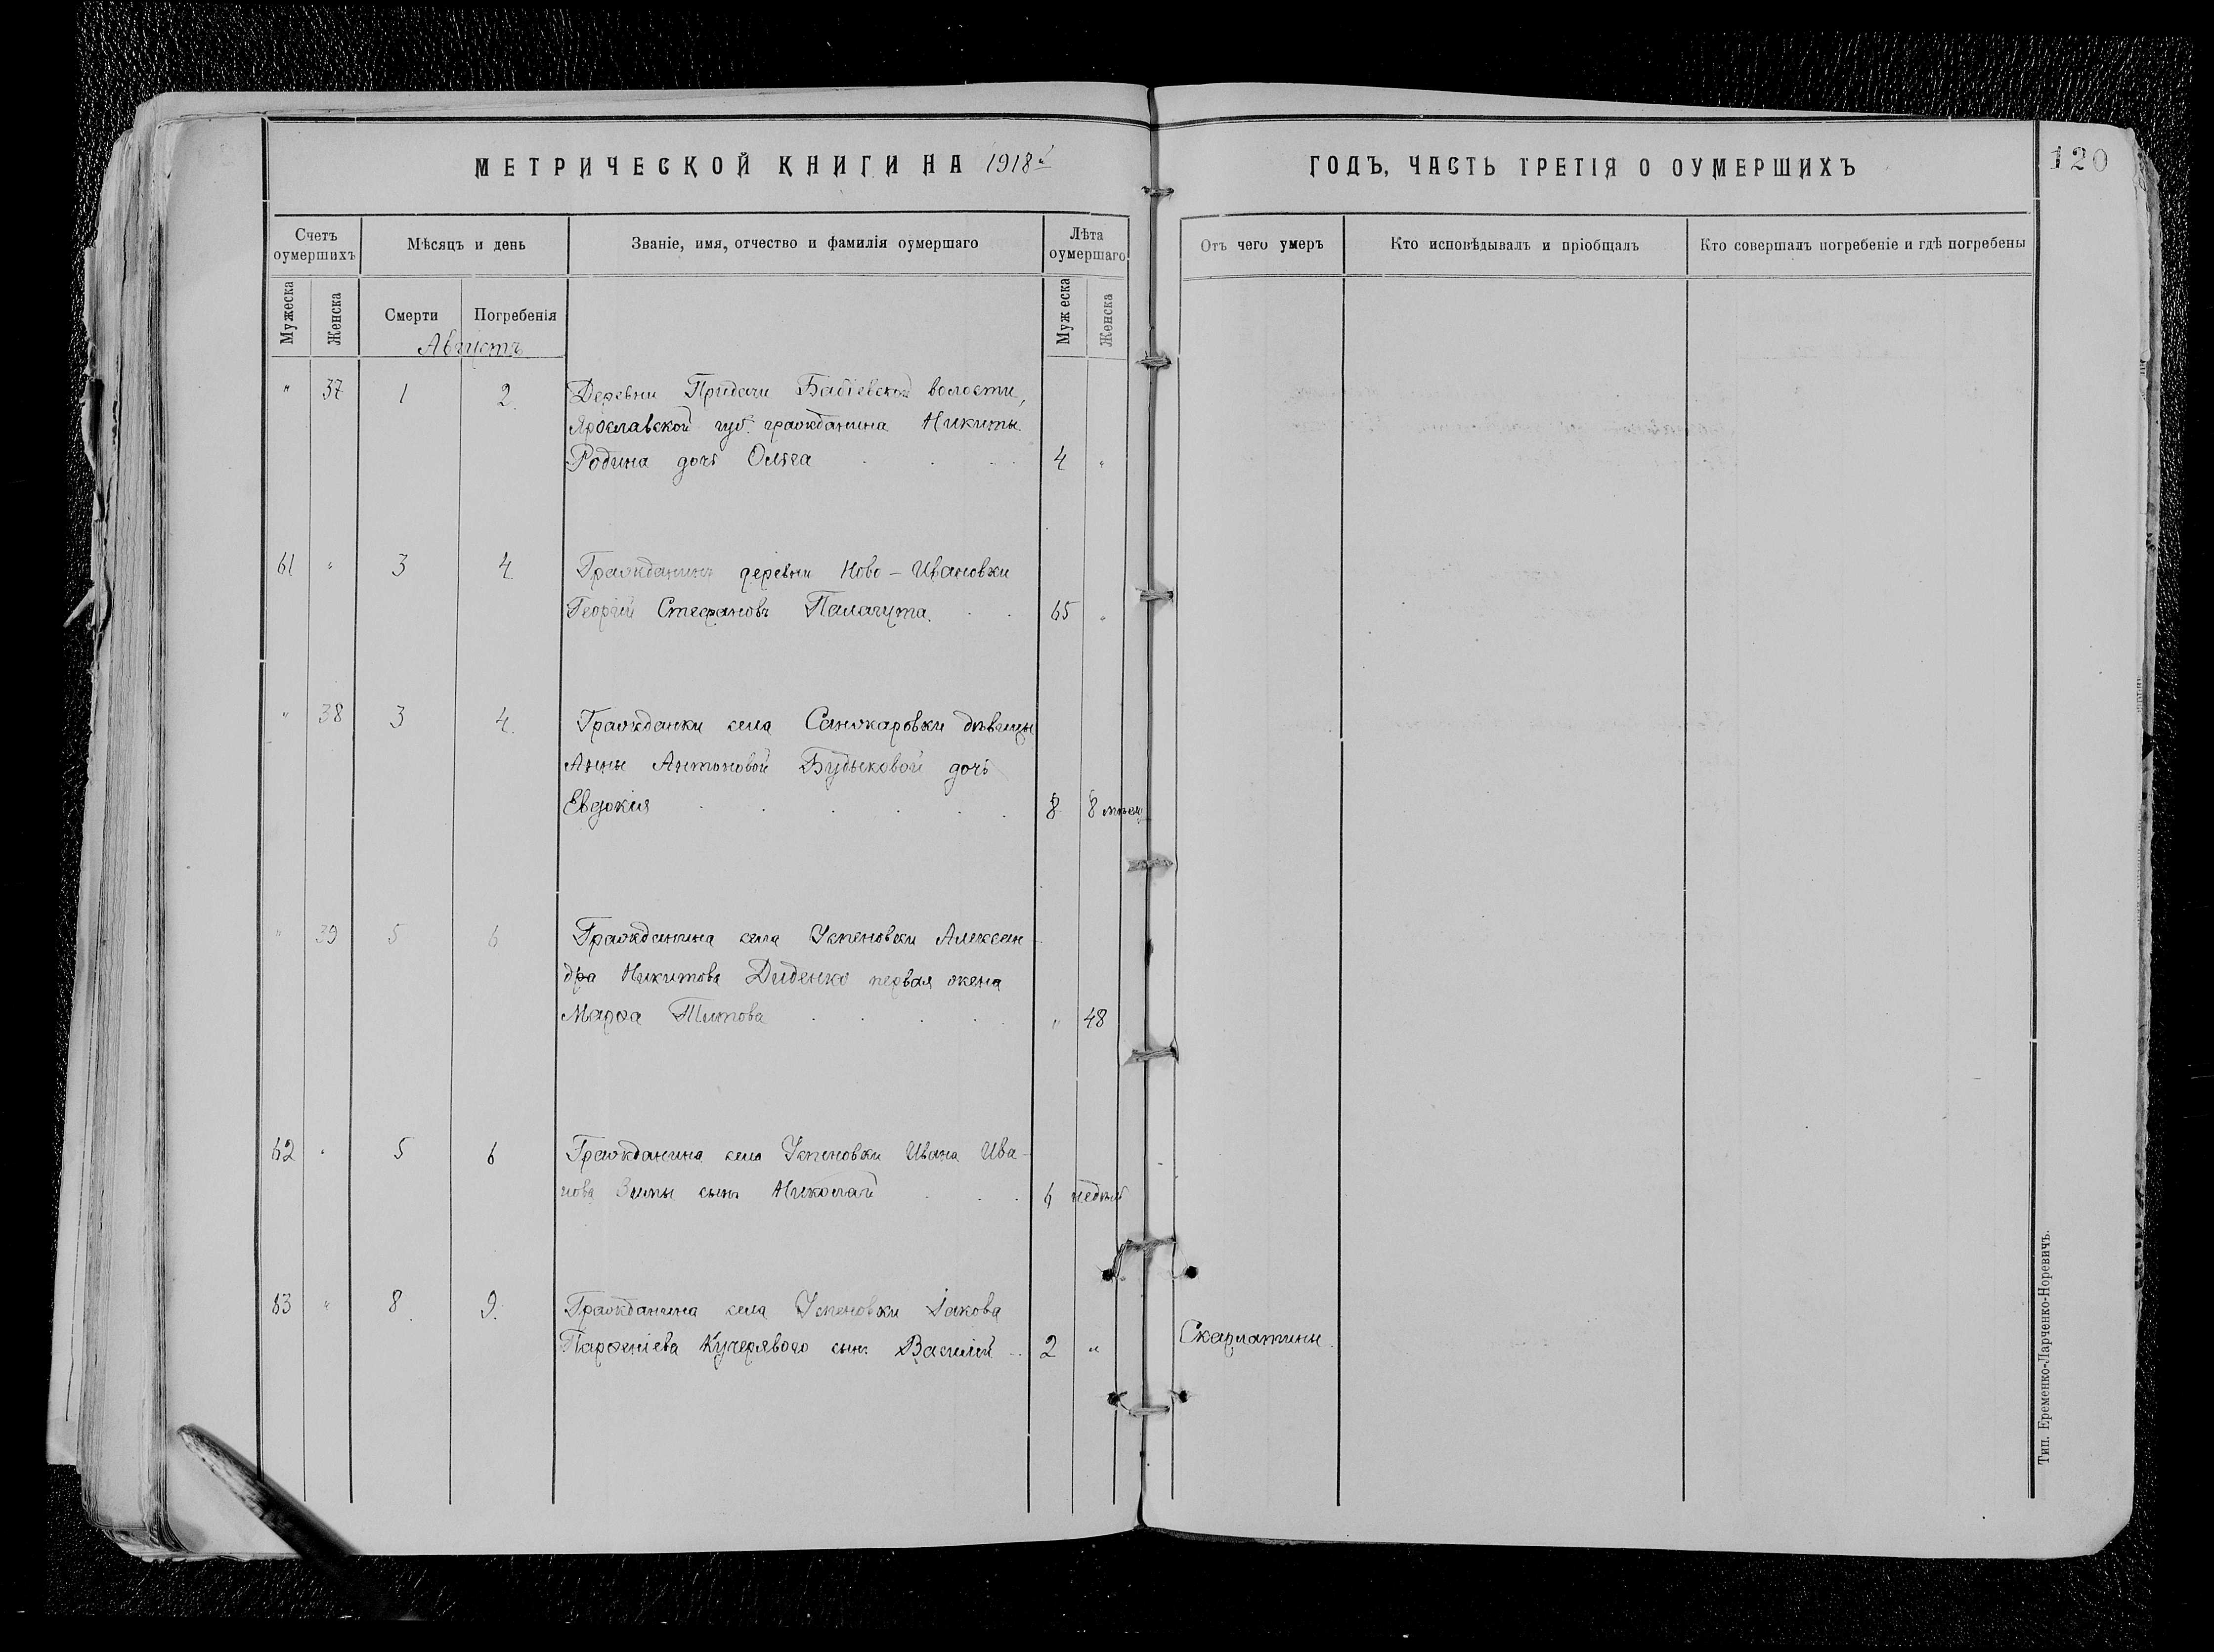 МЕТРИЧЕСКОЙ КНИГИ НА 1918й
ГОДЪ, ЧАСТЬ ТРЕТІЯ О ОУМЕРШИХЪ
120
Счетъ оумершихъ
Мѣсяцъ и день
Званіе, имя, отчество и фамилія оумершаго
Лѣта оумершаго
Отъ чего умеръ
Кто исповѣдывалъ и пріобщалъ
Кто совершалъ погребеніе и гдѣ погребены
Мужеска
Женска
Смерти
Погребенія
Муж еска
Женска
Августъ
" 37 1 2. Деревни Придачи Бабіевской волости,
Ярославской губ. гражданина Никиты
Родина дочь Ольга 4 "
61 " 3 4. Гражданинъ деревни Ново-Ивановки
Георгій Стефановъ Палагута. 65 "
" 38 3 4. Гражданки села Санжаровки дѣвицы
Анны Антоновой Будыковой дочь
Евдокія 8 8 мѣсяц
" 39 5 6 Гражданина села Успеновки Алексан-
дра Никитова Диденко первая жена
Марѳа Титова " 48
62 " 5 6 Гражданина села Успеновки Ивана Ива-
нова Зимы сынъ Николай 6 недѣль
63 " 8. 9. Гражданина села Успеновки Іакова
Парѳеніева Кучерявого сынъ Василій 2 " Скарлатины.
Тип. Еременко-Ларченко-Норевичъ.